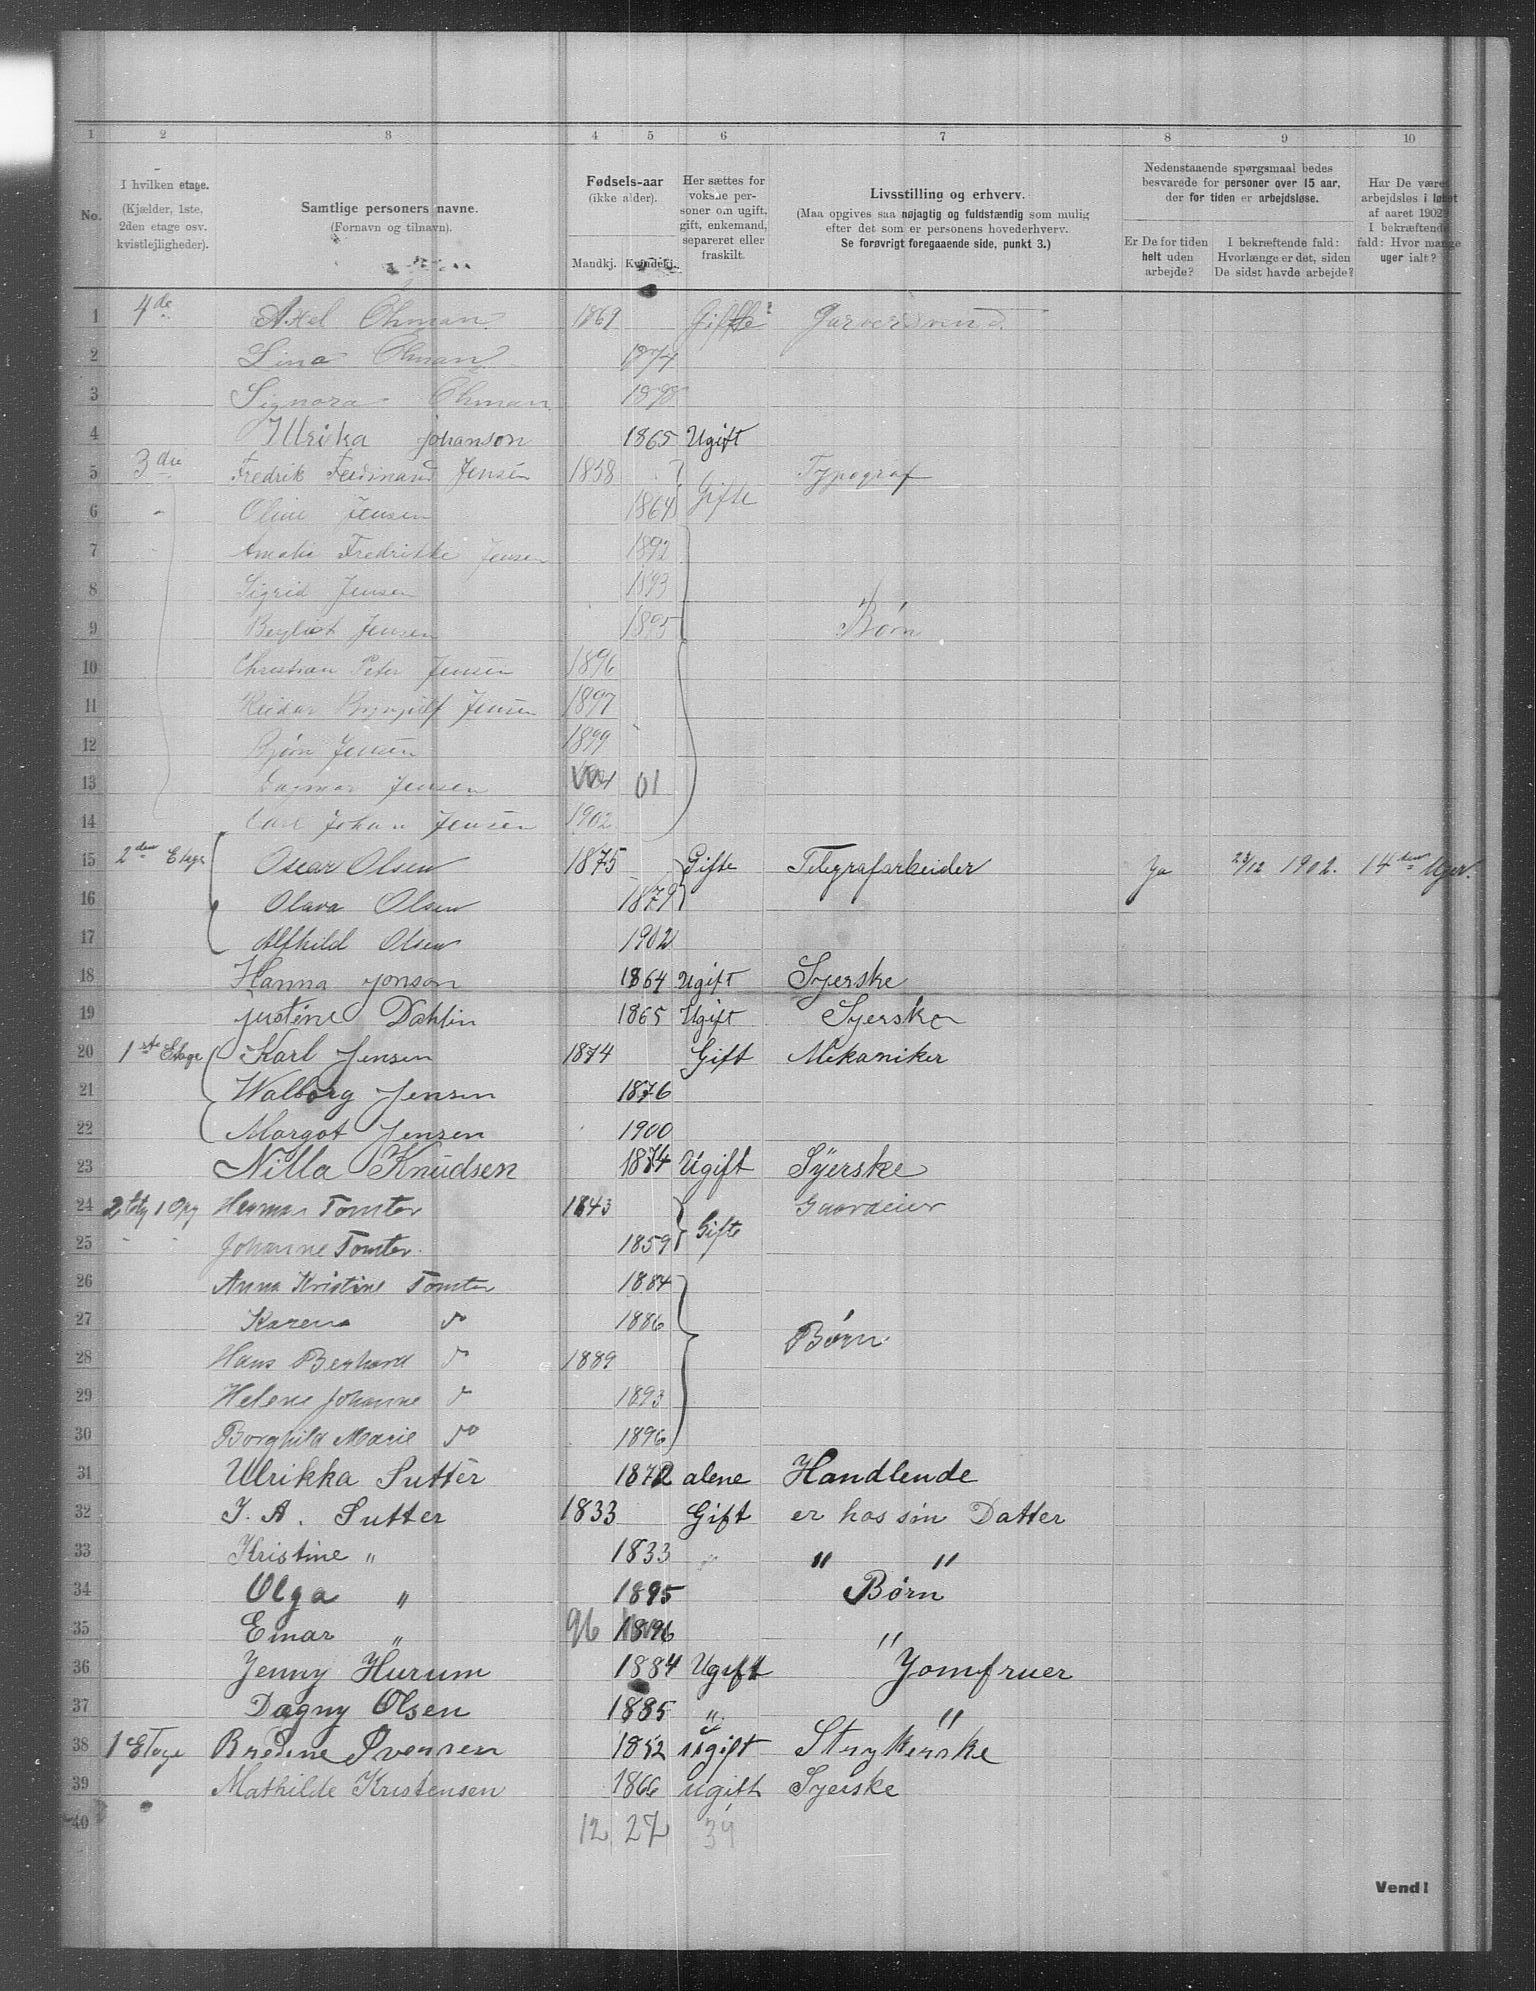 1 2 3 4 5 6 7 8 9 10
No.
I hvilken etage.
(Kjælder, 1ste,
2den etage osv.
kvistlejligheder).
Samtlige personers navne.
(Fornavn og tilnavn).
Fødsels-aar
(ikke alder).
Mandkj. Kvindekj.
Her sættes for
voksne per-
soner om ugift,
gift, enkemand,
separeret eller
fraskilt.
Livsstilling og erhverv.
(Maa opgives saa nøjagtig og fuldstændig som mulig
efter det som er personens hovederhverv.
Se forøvrigt foregaaende side, punkt 3.)
Nedenstaaende spørgsmaal bedes
besvarede for personer over 15 aar,
der for tiden er arbejdsløse.
Er De for tiden
helt uden
arbejde?
I bekræftende fald:
Hvorlænge er det, siden
De sidst havde arbejde?
Har De været
arbejdsløs i løbet
af aaret 1902?
I bekræftende
fald: Hvor mange
uger ialt?
1 4de Axel Öhman 1869 Gifte Garversvend
2 Lina Öhman 1874
3 Signora Öhman 1898
4 Ulrika Johanson 1865 Ugift
5 3die Fredrik Ferdinand Jensen 1858 Gifte Typograf
6 " Oline Jensen 1864
7 Amalie Fredrikke Jensen 1892
8 Sigrid Jensen 1893
9 Jensen 1895 Børn
10 Christian Peter Jensen 1896
11 Reidar Brynjulf Jensen 1897
12 Bjørn Jensen 1899
13 Dagmar Jensen 01
14 Carl Johan Jensen 1902
15 2den Etage Oscar Olsen 1875 Gifte Telegrafarbeider Ja 23/12 1902. 14 Uger.
16 Olava Olsen 1879
17 Alfhild Olsen 1902
18 Hanna Jonson 1864 Ugift Syerske
19 Justine Dahlin 1865 Ugift Syerske
20 1ste Etage Karl Jensen 1874 Gift Mekaniker
21 Walborg Jensen 1876
22 Margot Jensen 1900
23 Nilla Knudsen 1874 Ugift Syerske
24 2 Etg 1 Opg Herman Tomter 1843 Gifte Gaardeier
25 " " Johanne Tomter. 1859
26 Anna Kristine Tomter 1884
27 Karen do 1886 Børn
28 Hans Berhard do 1889
29 Helene Johanne do 1893
30 Borghild Marie do 1896
31 Ulrikka Sutter 1872 alene Handlende
32 J. A. Sutter 1833 Gift er hos sin Datter
33 Kristine " 1833 " " "
34 Olga " 1895 Børn
35 Einar " 96 1896 "
36 Jenny Hurum 1884 Ugift Jomfruer
37 Dagny Olsen 1885 " "
38 1 Etage Bredine Svensen 1852 ugift Strykerske
39 Mathilde Kristensen 1866 ugift Syerske
40 12 27 39
Vend!